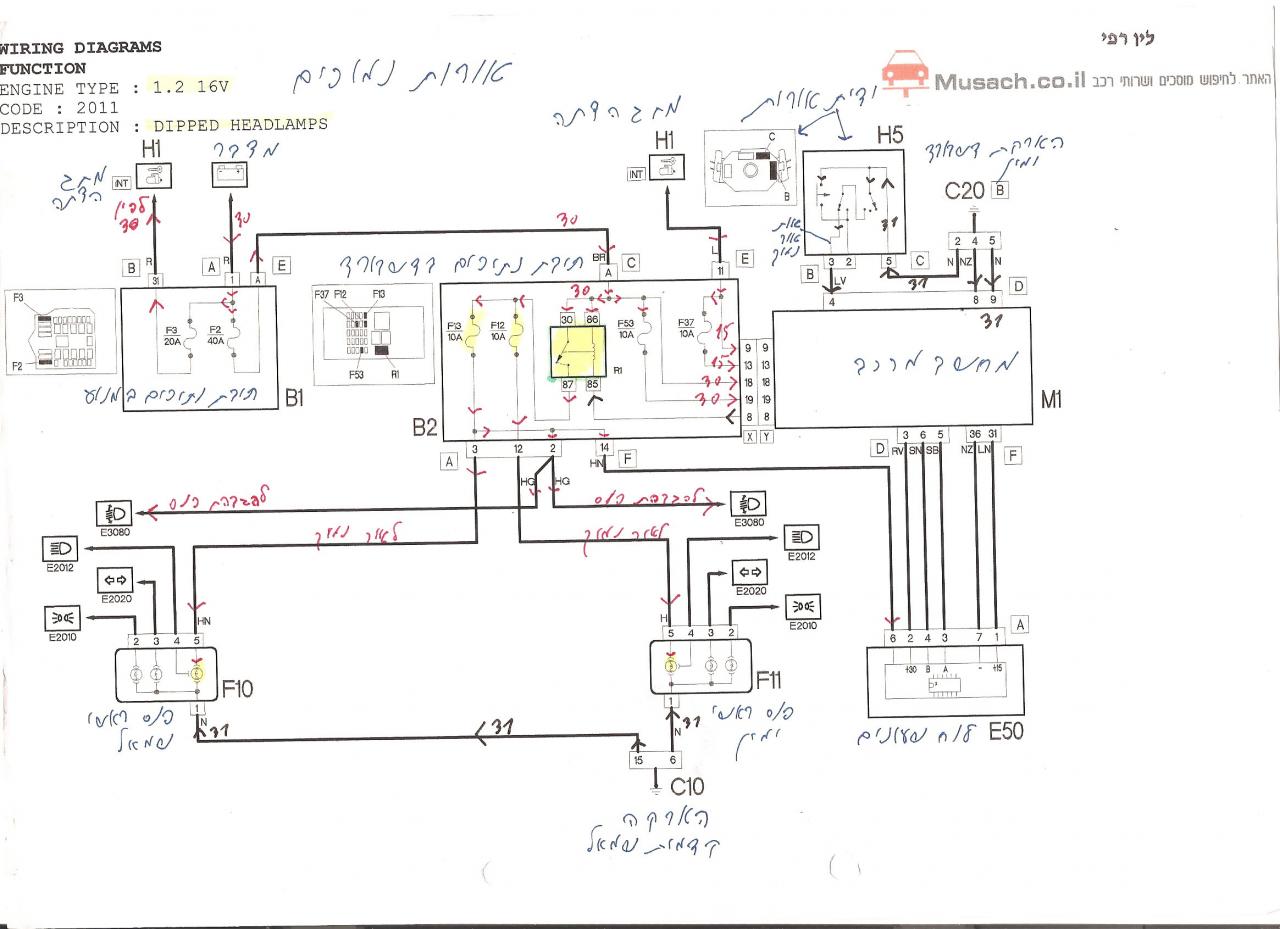 לין רפי
WIRING DIAGRAMS
FUNCTION
ENGINE TYPE : 1.2 16V
CODE : 2011
DESCRIPTION : DIPPED HEADLAMPS
אורות נמוכים
Musach.co.il האתר לחיפוש מוסכים ושרותי רכב
ידית אורות
מתג הצתה
H1
מצבר
H1
H5
הארקת דשבורד
ימין
C20 B
מתג
הצתה
INT
INT
C
B
לפין
30
30
30
31
אות
אור
נמוך
2 4 5
N NZ N
B R A R E
BR C L E
3 2 5 C
B LV 31
31 1 A
A
11
4 8 9 D
תיבת נתיכים בדשבורד
F3
F2
F3
20A
F2
40A
F37 F12 F13
F53 R1
30
F13
10A
F12
10A
30 86
87 85
R1
F53
10A
F37
10A
15
15
30
30
9 9
13 13
18 18
19 19
8 8
X Y
31
מחשב מרכב
M1
תיבת נתיכים במנוע
B1
B2
3 12 2 14
A HG HG HN F
D 3 6 5 36 31 F
RV SN SB NZ LN
להגבהת פנס
להגבהת פנס
E3080
E3080
לאור נמוך
לאור נמוך
E2012
E2012
E2020
E2020
E2010
E2010
HN
H
2 3 4 5
5 4 3 2
6 2 4 3 7 1 A
+30 B A - +15
F10
F11
1 N 31
31
1 N 31
פנס ראשי
שמאל
פנס ראשי
ימין
לוח שעונים
E50
15 6
C10
הארקה
קדמית שמאל